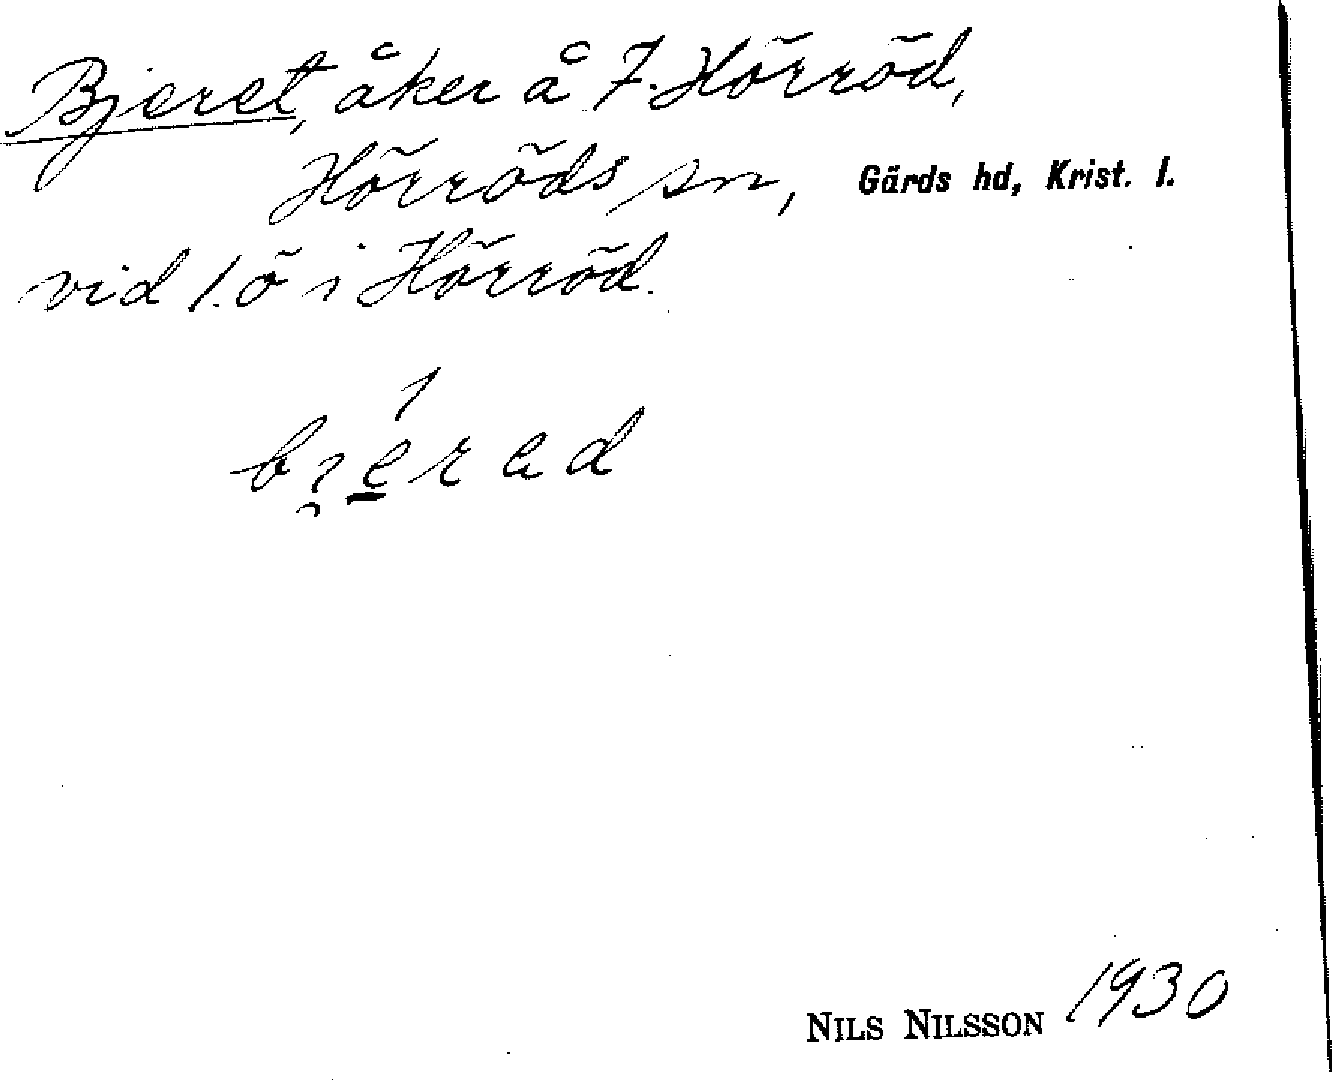 Bjeret, åker å 7. Hörröd,
Hörröds sn, Gärds hd, Krist. l.
vid 1.ö i Hörröd.
NILS NILSSON 1930